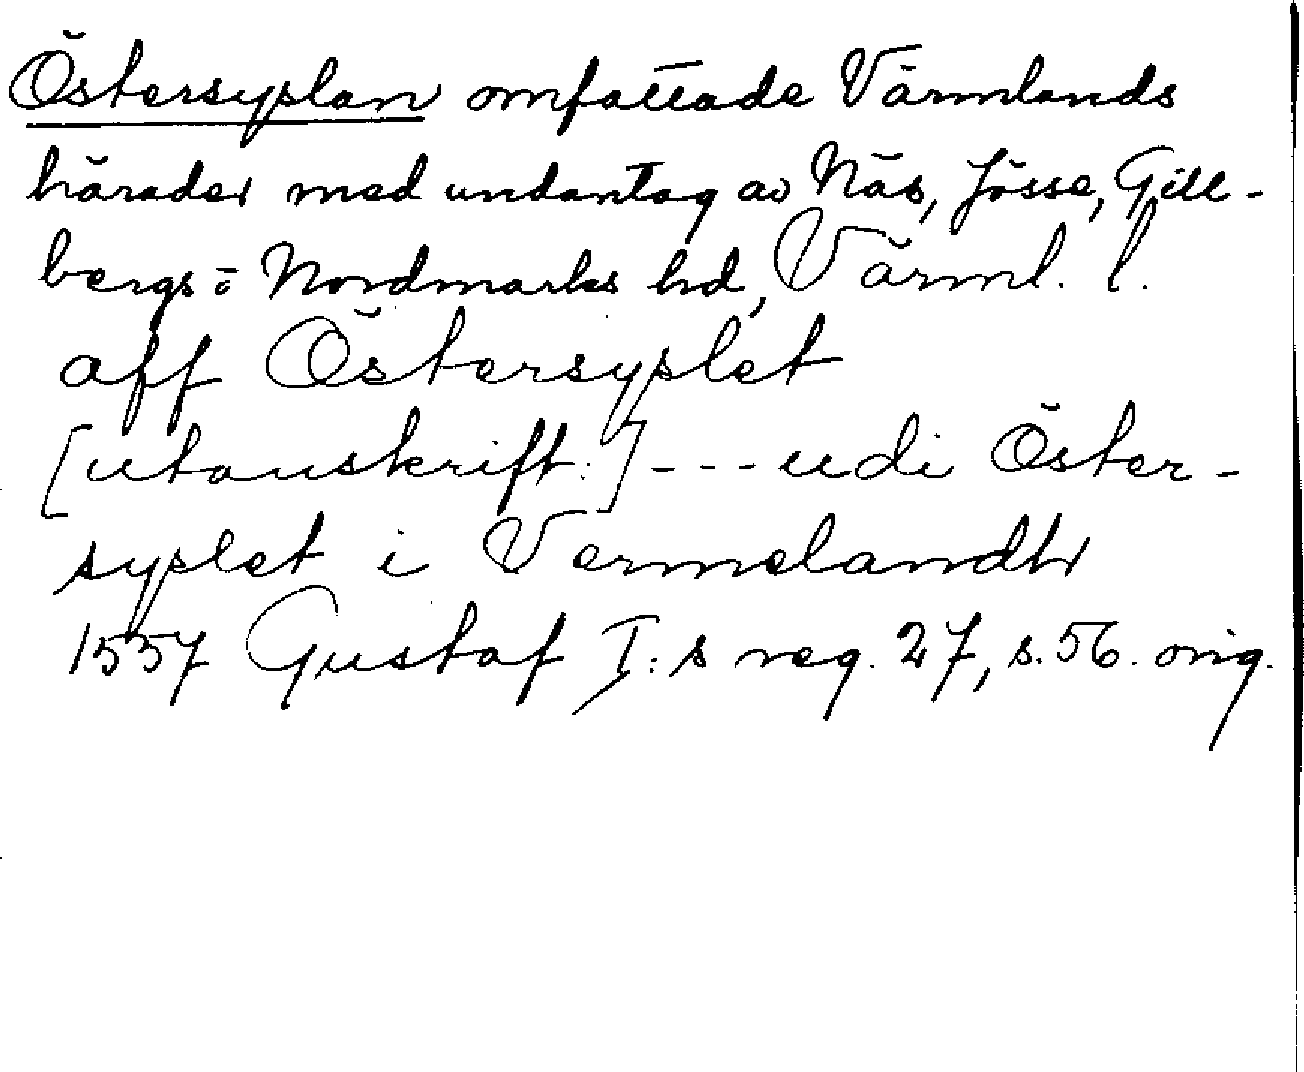 Östersyslan omfattade Värmlands
härader med undantag av Näs, Jösse, Gill-
bergs o Nordmarks hd, Värml. l.
aff Östersyslet
[utanskrift:] --- udi Öster-
syslet i Vermelandh
1557 Gustaf I:s reg. 27, s. 56. orig.